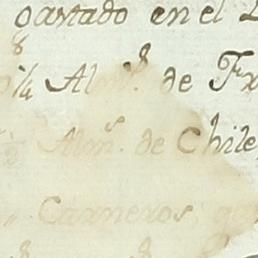 gastado en el
¼ Almˢ. de Fr
½ Almˢ. de Chile
Carneros, ga